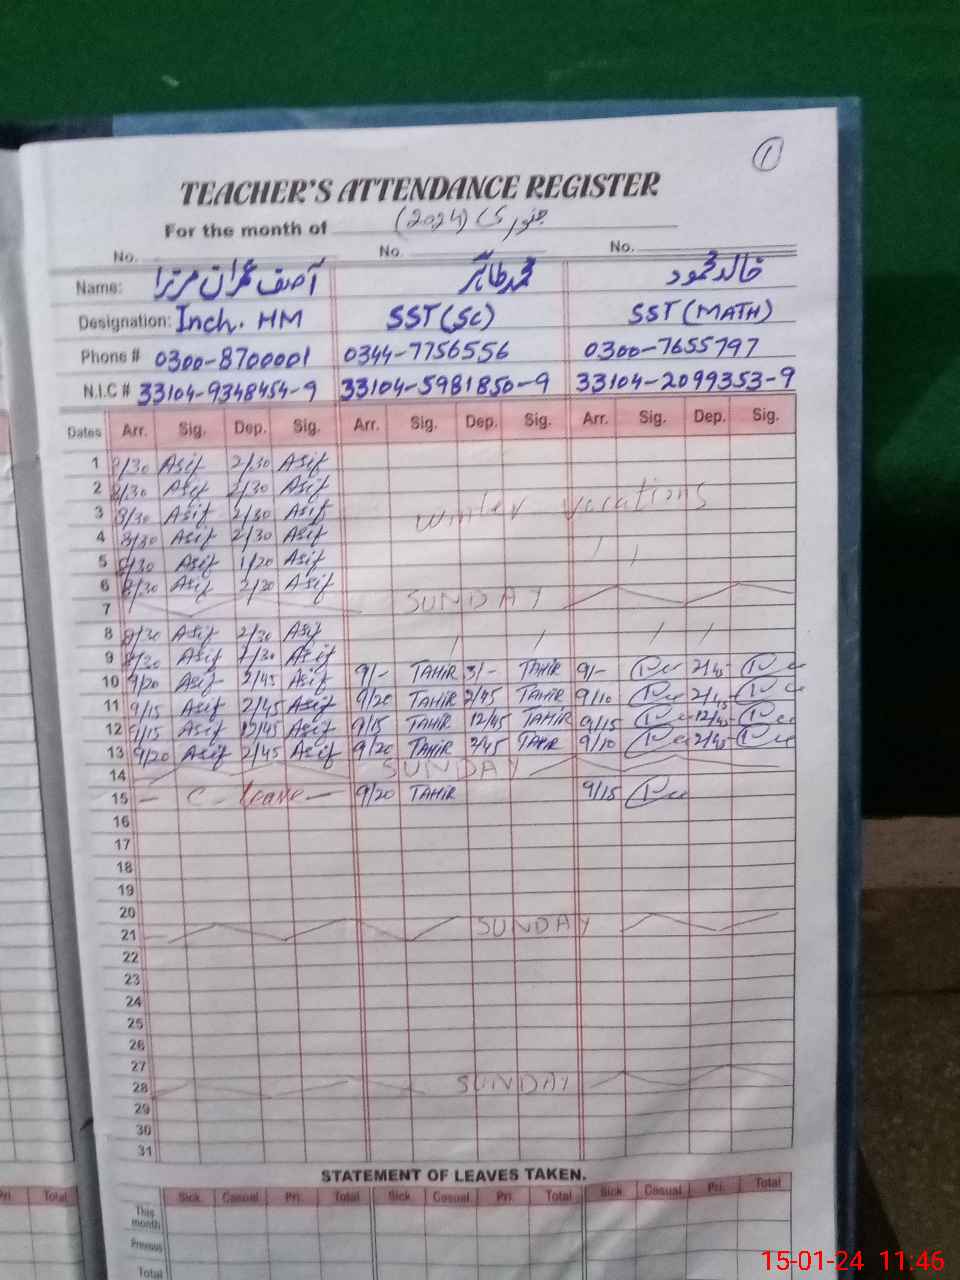 1
TEACHER'S ATTENDANCE REGISTER
For the month of جنوری (2024)
No. No. No.
Name: آصف عمران مرزا محمد طاہر خالد محمود
Designation: Inch. HM SST (SC) SST (MATH)
Phone # 0300-8700001 0344-7756556 0300-7655797
N.I.C # 33104-9348454-9 33104-5981850-9 33104-2099353-9
Dates Arr. Sig. Dep. Sig. Arr. Sig. Dep. Sig. Arr. Sig. Dep. Sig.
1 8/30 Asif 2/30 Asif
2 8/30 Asif 2/30 Asif
3 8/30 Asif 2/30 Asif winter vacations
4 8/30 Asif 2/30 Asif
5 8/30 Asif 1/20 Asif
6 8/30 Asif 2/20 Asif
7 SUNDAY
8 8/30 Asif 2/30 Asif
9 8/30 Asif 2/30 Asif
10 9/20 Asif 2/45 Asif 9/- TAHIR 3/- TAHIR 9/- 2/45
11 9/15 Asif 2/45 Asif 9/20 TAHIR 2/45 TAHIR 9/10 2/45
12 9/15 Asif 12/45 Asif 9/15 TAHIR 12/45 TAHIR 9/15 12/45
13 9/20 Asif 2/45 Asif 9/20 TAHIR 2/45 TAHIR 9/10 2/45
14 SUNDAY
15 — C. leave — 9/20 TAHIR 9/15
16
17
18
19
20
21 SUNDAY
22
23
24
25
26
27
28 SUNDAY
29
30
31
STATEMENT OF LEAVES TAKEN.
Pri. Total Sick Casual Pri. Total Sick Casual Pri. Total Sick Casual Pri. Total
This month
Previous
Total
15-01-24 11:46